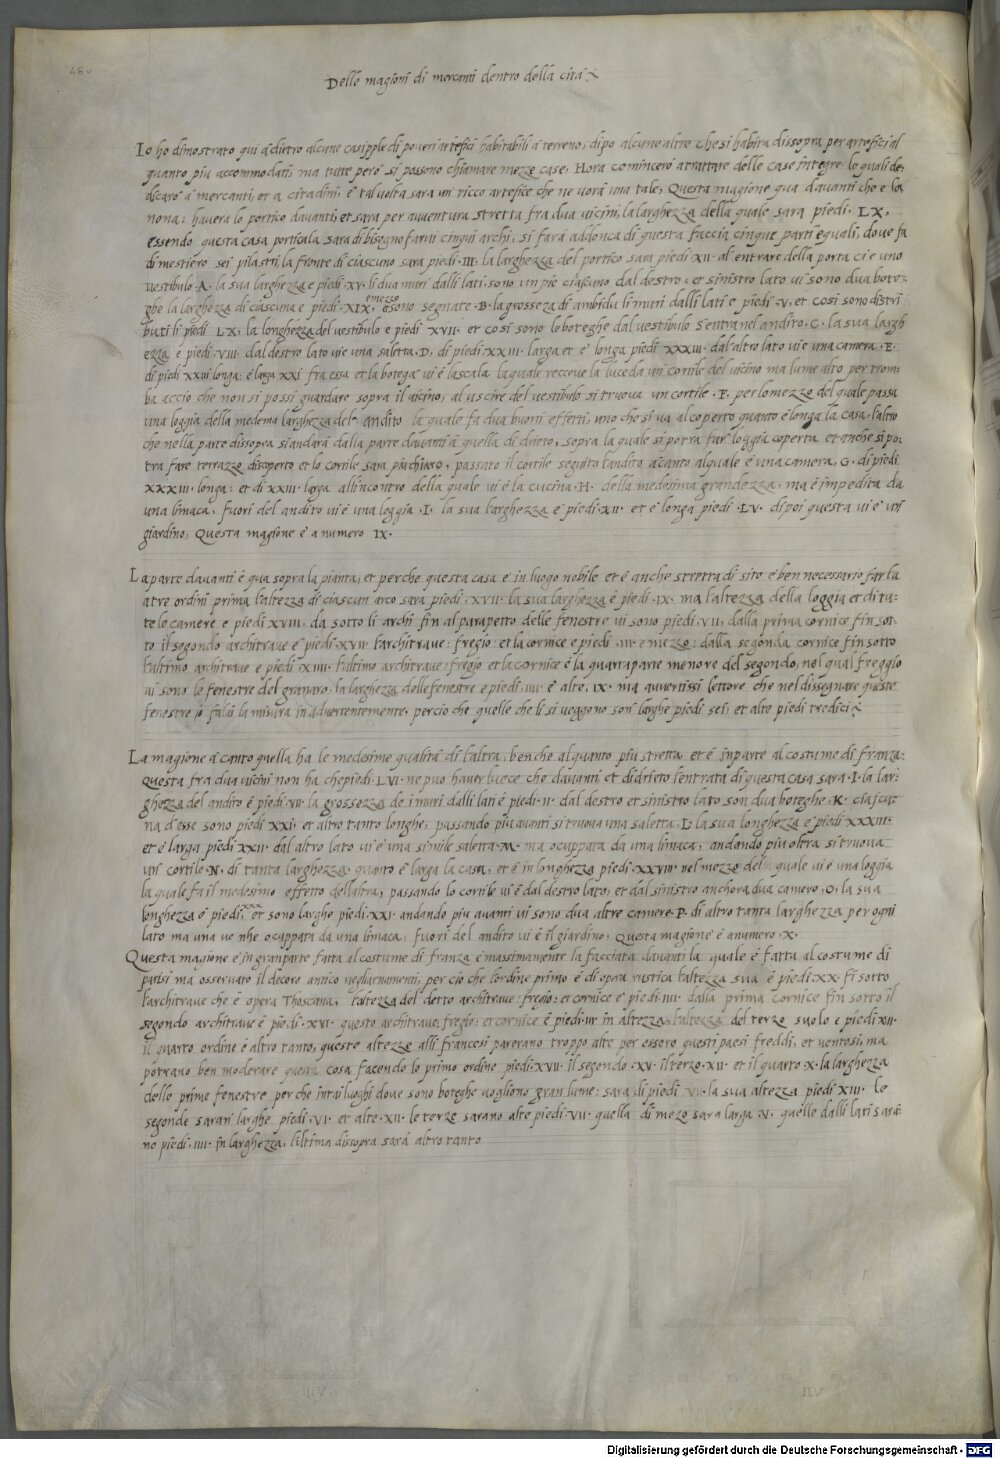 46v
Delle magioni di mercanti dentro della cità
Io ho dimostrato qui a dietro alcune casipple di poveri artefici habitabili a terreno, dipo alcune altre che si habita dissopra per artefici al
quanto piu accommodati, ma tutte però si possono chiamare mezze case, Hora comincero a trattare delle case integre, le quali de,
dicarò a mercanti, et a citadini, e tal volta sara un ricco artefice che ne vorà una tale, Questa magione qua davanti che e la
nona: haverà lo portico davanti, et sara per avventura stretta fra dua vicini, la larghezza della quale sara piedi · LX,
essendo questa casa porticala sara di bisogno farvi cinqui archi, si fara addonca di questa faccia cinque parti equali, dove fa
di mestiero sei pilastri, la fronte di ciascuno sara piedi · III· la larghezza del portico sara piedi XII· al entrare della porta ci e uno
vestibulo · A· la sua larghezza e piedi · XV· li dua muri dalli lati · sono un pie ciascuno dal destro: et sinistro lato vi sono dua bote-
ghe la larghezza di ciascuna e piedi · XIX, e mezo sono segnate · B· la grosseza di ambidu li muri dalli lati e piedi · V, et cosi sono distri
buti li piedi LX, la longhezza del vestibulo e piedi XVII· et cosi sono le boteghe dal vestibulo s'entra nel andito, C· la sua largh
ezza e piedi · VIII· dal destro lato vi e una saletta · D, di piedi XXIII· larga et e longa piedi XXXIII· dal altro lato vi e una camera · E·
di piedi XXIII longa: e larga XXI fra essa et la botega vi è la scala la quale receve la luce da un cortile del vicino ma lume alto per trom,
ba accio che non si possi guardare sopra il vicino, al uscire del vestibulo si truova un cortile · F· per lo mezzo del quale passa
una loggia della medema larghezza del andito la quale fa dua buoni effetti, uno che si va al coperto quanto e longa la casa, l'altro
che nella parte dissopra si andarà dalla parte davanti a quella di drieto, sopra la quale si potra far loggia coperta et anche si po:
tra fare terrazzo discoperto et lo cortile sara piu chiaro, passato il cortile seguita l'andito a canto al quale è una camera, G· di piedi
XXXIII· longa: et di XXIII· larga all'incontro della quale vi è la cucina · H· della medesima grandezza: ma è impedita da
una limaca, fuori del andito vi è una loggia · I· la sua larghezza e piedi · XII· et è longa piedi · LV· dipoi questa vi e un
giardino, Questa magione è a numero IX·
La parte davanti è qua sopra la pianta, et perche questa casa e in luogo nobile et è anche stretta di sito e ben necessario farla
a tre ordini prima l'altezza di ciascun arco sara piedi, XVII· la sua larghezza e piedi · IX· ma l'altezza della loggia et di tu-
te le camere e piedi XVIII· da sotto li archi fin al parapetto delle fenestre vi sono piedi · VII, dalla prima cornice fin sot-
to il segondo architrave e piedi · XVII· l'architrave: fregio: et la cornice e piedi · III· e mezo: dalla segonda cornice fin sotto
l'ultimo architrave e piedi XIIII· l'ultimo architrave: fregio et la cornice e la quarta parte menore del segondo, nel qual freggio
vi sono le fenestre del granaro, la larghezza delle fenestre e piedi · IIII· e alte, IX· ma avvertissi lettore che nel dissegnare queste
fenestre io falai la misura inadvertentemente, percio che quelle che li si veggono son larghe piedi sei, et alte piedi tredici
La magione à canto quella ha le medesime qualità di l'altra, benche alquanto piu stretta et è in parte al costume di franza:
Questa fra dua vicini non ha che piedi · LVI· ne puo haver luece che davanti et di drieto l'entrata di questa casa sarà · I· la lar:
ghezza del andito è piedi · VII· la grossezza de i muri dalli lati è piedi · II· dal destro et sinistro lato son dua boteghe · K· ciascu:
na d'esse sono piedi XXI, et altro tanto longhe, passando piu avanti si truova una saletta · L· la sua longhezza e piedi XXXIII·
et è larga piedi XXII· dal altro lato vi è una simile saletta · M· ma ocuppata da una limaca, andando piu oltra si truova
un cortile · N· di tanta larghezza, quanto è larga la casa, et è in longhezza piedi · XXVIII· nel mezzo del quale vi è una loggia
la quale fa il medesimo effetto dell'altra, passando lo cortile vi è dal destro lato, et dal sinistro anchora dua camere, O, la sua
longhezza e piedi, XXX et sono larghe piedi · XXI· andando piu avanti vi sono dua altre camere · P· di altro tanta larghezza per ogni
lato ma una ve n'he ocuppata da una limaca, fuori del andito vi è il giardino, Questa magione è a numero · X·
Questa magione è in gran parte fatta al costume di franza e massimamente la facciata davanti la quale è fatta al costume di
parisi ma osservato il decoro antico negli ornamenti, per cio che l'ordine primo è di opra rustica l'altezza sua è piedi · XX· fi sotto
l'architrave che è opera Thoscana, l'altezza del detto architrave: fregio: et cornice e piedi · IIII· dalla prima cornice fin sotto il
segondo architrave è piedi · XVI· questo architrave, fregio: et cornice è piedi · III· in altezza, l'altezza del terzo suolo e piedi XII·
il quarto ordine è altro tanto, queste altezze alli francesi parerano troppo alte per essere questi paesi freddi, et ventosi, ma
potrano ben moderare questa cosa facendo lo primo ordine piedi · XVII· il segondo · XV· il terzo · XII· et il quarto X· la larghezza
delle prime fenestre perche in tti luoghi dove sono boteghe vogliono gran lume: sarà di piedi VII· la sua altezza piedi XIII· le
segonde saran larghe piedi, VI· et alte · XII· le terze sarano alte piedi · VII· quella di mezo sara larga · V· quelle dalli lati sarà:
no piedi · IIII· in larghezza, l'ultima dissopra sarà altro tanto
Digitalisierung gefördert durch die Deutsche Forschungsgemeinschaft - DFG